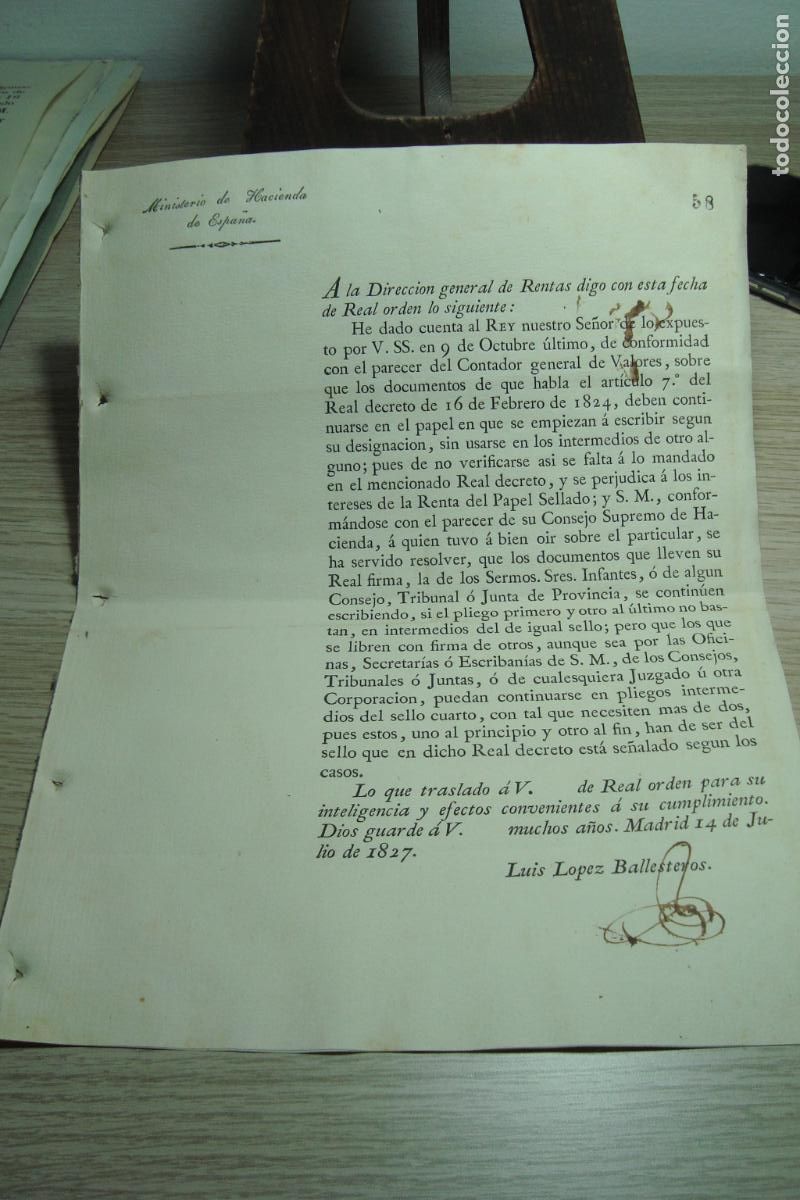 todocoleccion
Ministerio de Hacienda
de España.
58
A la Direccion general de Rentas digo con esta fecha
de Real orden lo siguiente:
He dado cuenta al REY nuestro Señor de lo expues-
to por V. SS. en 9 de Octubre último, de conformidad
con el parecer del Contador general de Valores, sobre
que los documentos de que habla el artículo 7.º del
Real decreto de 16 de Febrero de 1824, deben conti-
nuarse en el papel en que se empiezan á escribir segun
su designacion, sin usarse en los intermedios de otro al-
guno; pues de no verificarse asi se falta á lo mandado
en el mencionado Real decreto, y se perjudica á los in-
tereses de la Renta del Papel Sellado; y S. M., confor-
mándose con el parecer de su Consejo Supremo de Ha-
cienda, á quien tuvo á bien oir sobre el particular, se
ha servido resolver, que los documentos que lleven su
Real firma, la de los Sermos. Sres. Infantes, ó de algun
Consejo, Tribunal ó Junta de Provincia, se continúen
escribiendo, si el pliego primero y otro al último no bas-
tan, en intermedios del de igual sello; pero que los que
se libren con firma de otros, aunque sea por las Ofici-
nas, Secretarías ó Escribanías de S. M., de los Consejos,
Tribunales ó Juntas, ó de cualesquiera Juzgado ú otra
Corporacion, puedan continuarse en pliegos interme-
dios del sello cuarto, con tal que necesiten mas de dos,
pues estos, uno al principio y otro al fin, han de ser del
sello que en dicho Real decreto está señalado segun los
casos.
Lo que traslado á V. de Real orden para su
inteligencia y efectos convenientes á su cumplimiento.
Dios guarde á V. muchos años. Madrid 14 de Ju-
lio de 1827.
Luis Lopez Ballesteros.